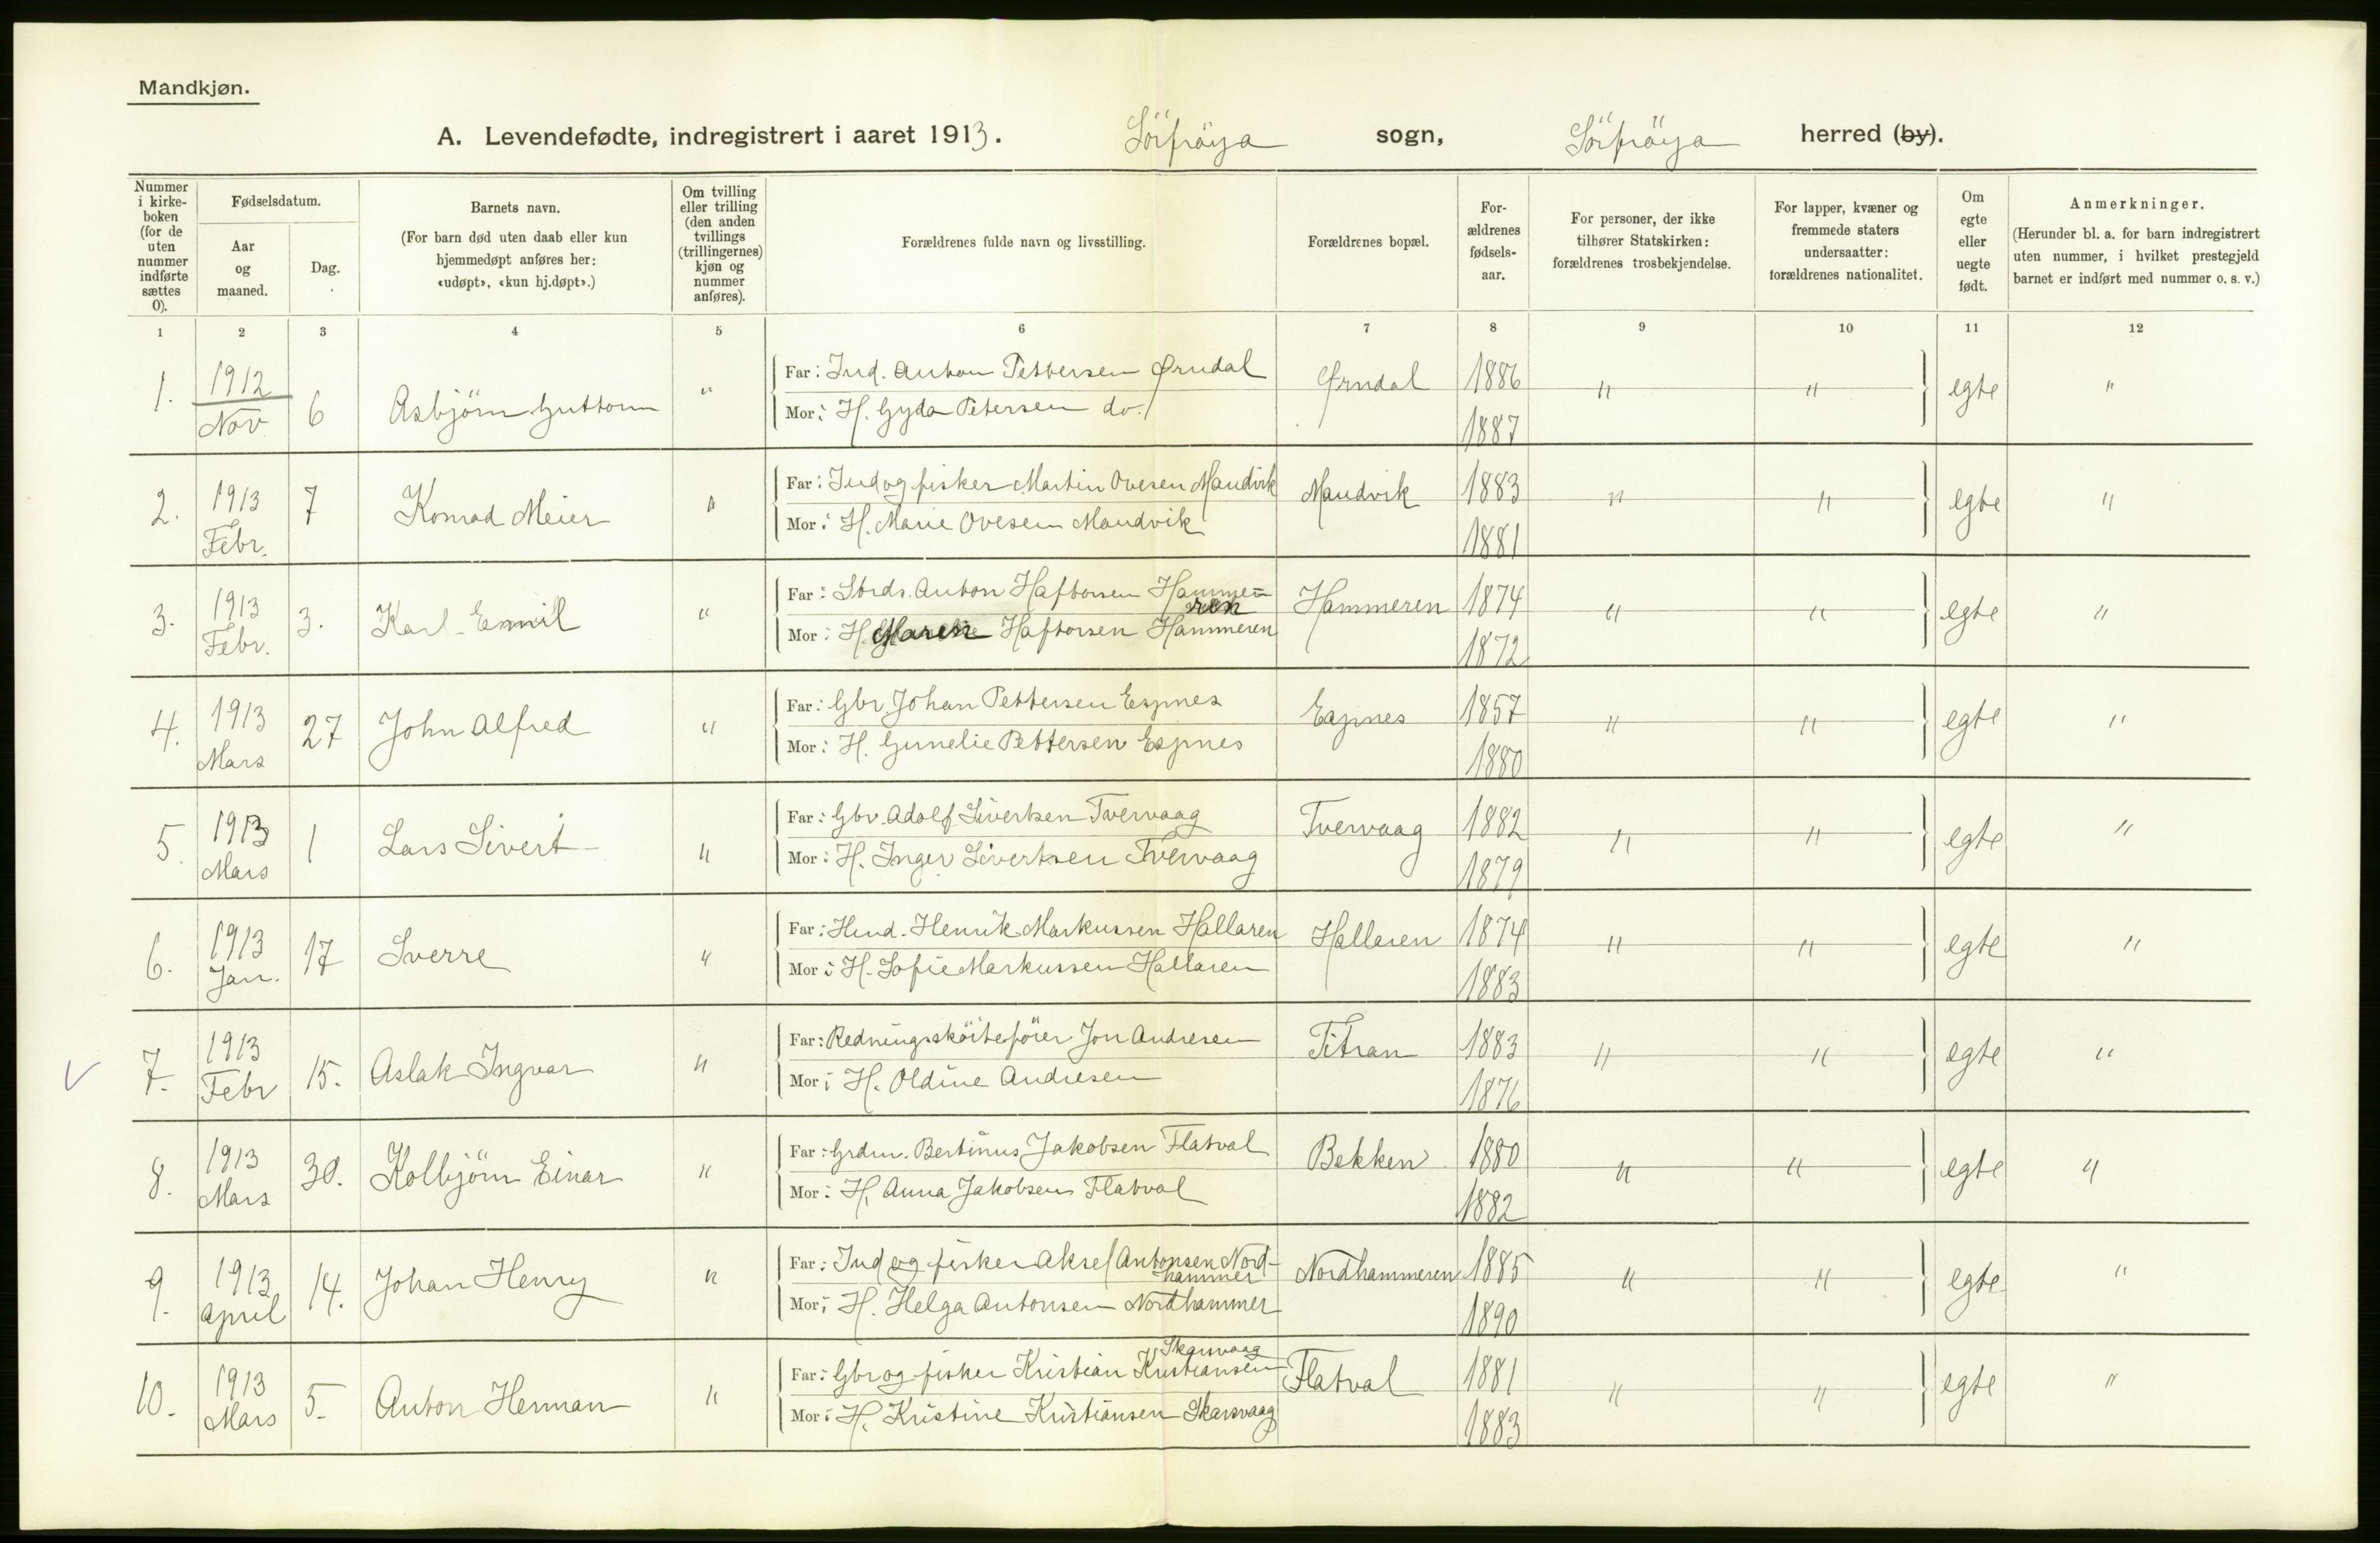 Mandkjøn.
A. Levendefødte, indregistrert i aaret 1913. Sörfröya sogn, Sörfröya herred (by).
Nummer i kirke-boken (for de uten nummer indførte sættes 0).
Fødselsdatum.
Aar og maaned.
Dag.
Barnets navn.
(For barn død uten daab eller kun hjemmedøpt anføres her: «udøpt», «kun hj.døpt».)
Om tvilling eller trilling (den anden tvillings (trillingernes) kjøn og nummer anføres).
Forældrenes fulde navn og livsstilling.
Forældrenes bopæl.
For-ældrenes fødsels-aar.
For personer, der ikke tilhører Statskirken: forældrenes trosbekjendelse.
For lapper, kvæner og fremmede staters undersaatter: forældrenes nationalitet.
Om egte eller uegte født.
Anmerkninger.
(Herunder bl. a. for barn indregistrert uten nummer, i hvilket prestegjeld barnet er indført med nummer o. s. v.)
1 2 3 4 5 6 7 8 9 10 11 12
1. 1912 Nov 6 Asbjörn Guttorm " Far: Ind. Anton Pettersen Ørndal Ørndal 1886 " " egte "
Mor: H. Gyda Petersen do. 1887
2. 1913 Febr. 7 Konrad Meier " Far: Ind og fisker Martin Ovesen Mandvik Mandvik 1883 " " egte "
Mor: H. Marie Ovesen Mandvik 1881
3. 1913 Febr. 3. Karl Emil " Far: Strds. Anton Haftorsen Hamme=ren Hammeren 1874 " " egte "
Mor: H. Maren Haftorsen Hammeren 1872
4. 1913 Mars 27 John Alfred " Far: Gbr. Johan Pettersen Espnes Espnes 1857 " " egte "
Mor: H. Gunelie Pettersen Espnes 1880
5. 1913 Mars 1 Lars Sivert " Far: Gbr. Adolf Sivertsen Tvervaag Tvervaag 1882 " " egte "
Mor: H. Inger Sivertsen Tvervaag 1879
6. 1913 Jan. 17 Sverre " Far: Hmd. Henrik Markussen Hallaren Hallaren 1874 " " egte "
Mor: H. Sofie Markussen Hallaren 1883
7. 1913 Febr 15. Aslak Ingvar " Far: Redningssköitefører Jon Andresen Titran 1883 " " egte "
Mor: H. Oldine Andresen 1876
8. 1913 Mars 30. Kolbjörn Einar " Far: Grdm. Bertinus Jakobsen Flatval Bekken 1880 " " egte "
Mor: H. Anna Jakobsen Flatval 1882
9. 1913 April 14. Johan Henry " Far: Ind og fisker Aksel Antonsen Nord-hammer Nordhammeren 1885 " " egte "
Mor: H. Helga Antonsen Nordhammer 1890
10. 1913 Mars 5. Anton Herman " Far: Gbr og fisker Kristian Kristiansen Skarsvaag Flatval 1881 " " egte "
Mor: H. Kristine Kristiansen Skarsvaag 1883